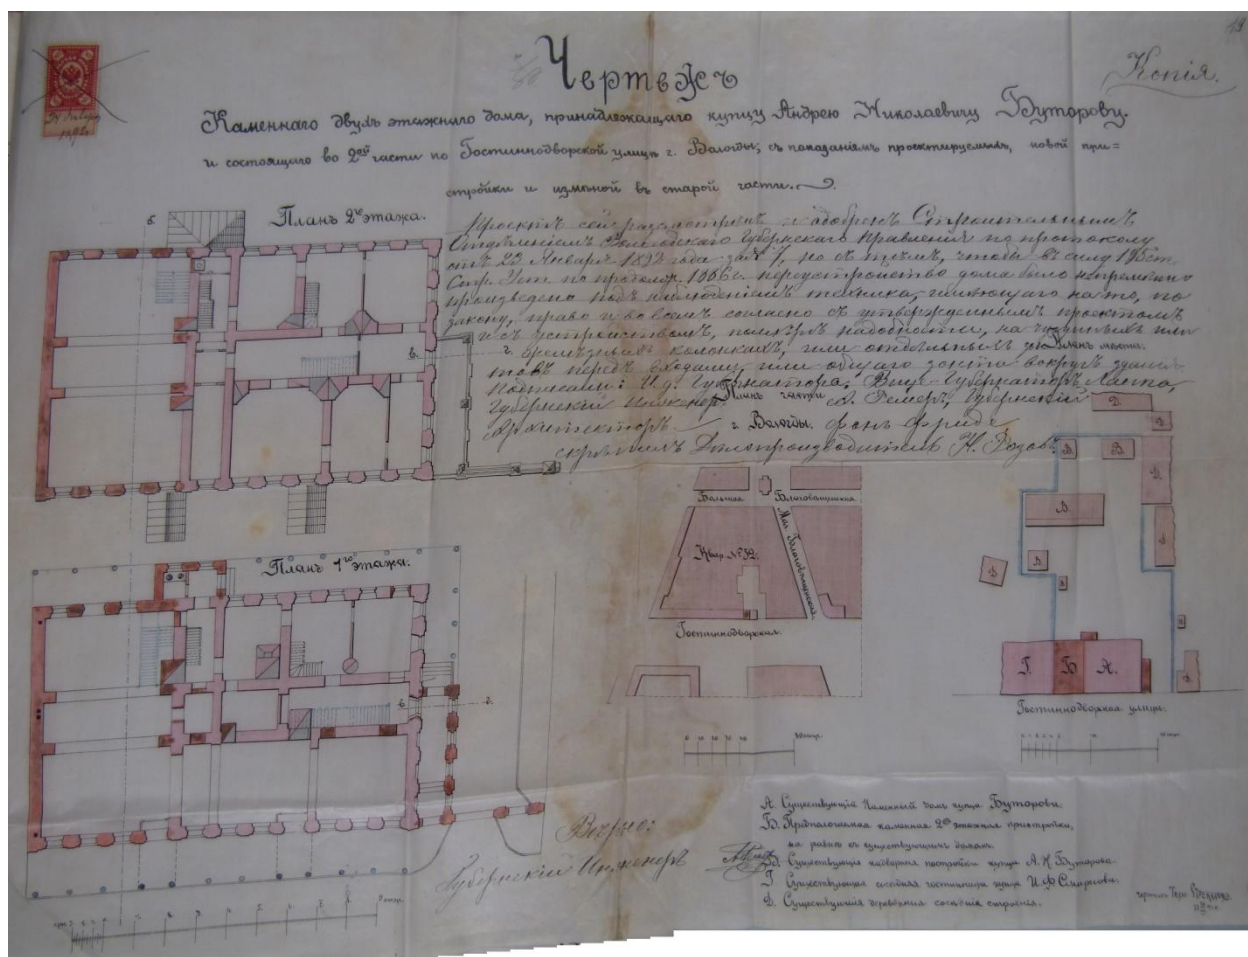 19
Копія.
Чертежъ
Каменнаго двухъ этажнаго дома, принадлежащаго купцу Андрею Николаевичу Буторову.
и состоящаго во 2ой части по Гостиннодворской улицѣ г. Вологды, съ показаніемъ проектируемыхъ, новой при=
стройки и измѣной въ старой части.
Планъ 2го этажа.
Проектъ сей разсмотренъ и одобренъ Строительнымъ
Отдѣленіемъ Вологодскаго Губернскаго Правленія по протоколу
отъ 23 Января 1892 года за № 7, но съ тѣмъ, чтобы въ силу
Стр. Уст. по продолж. 1886 г. переустройство дома было непремѣнно
произведено подъ наблюденіемъ техника, имѣющаго на то, по
закону, право и во всемъ согласно съ утвержденнымъ проектомъ
и съ устройствомъ, по мѣрѣ надобности, на чугунныхъ или
колонкахъ, или отдѣльныхъ
Планъ мѣста.
товъ передъ входами, или общаго зонта вокругъ зданія.
Подписали: И. д. Губернатора, Вице-Губернаторъ Лаппа,
Губернскій Инженеръ А. Ремеръ, Губернскій
Планъ части
Архитекторъ фонъ Фриде
г. Вологды.
скрѣпилъ Дѣлопроизводитель Н. Розовъ.
Большая Благовѣщенская
Мал. Благовѣщенская
Квар. № 52.
Гостиннодворская.
Планъ 1го этажа.
в.
Д
Д
В
В
Д
В
Д
Д
В
Г. Б А.
Гостиннодворская улица.
А Существующій Каменный домъ купца Буторова.
Б. Предполагаемая каменная 2хъ этажная пристройка,
на равнѣ съ существующимъ домомъ.
В. Существующія надворныя постройки купца А. Н. Буторова.
Г Существующая сосѣдняя гостинница купца
Д. Существующія деревянныя сосѣднія строенія.
Вѣрно:
Губернскій Инженеръ